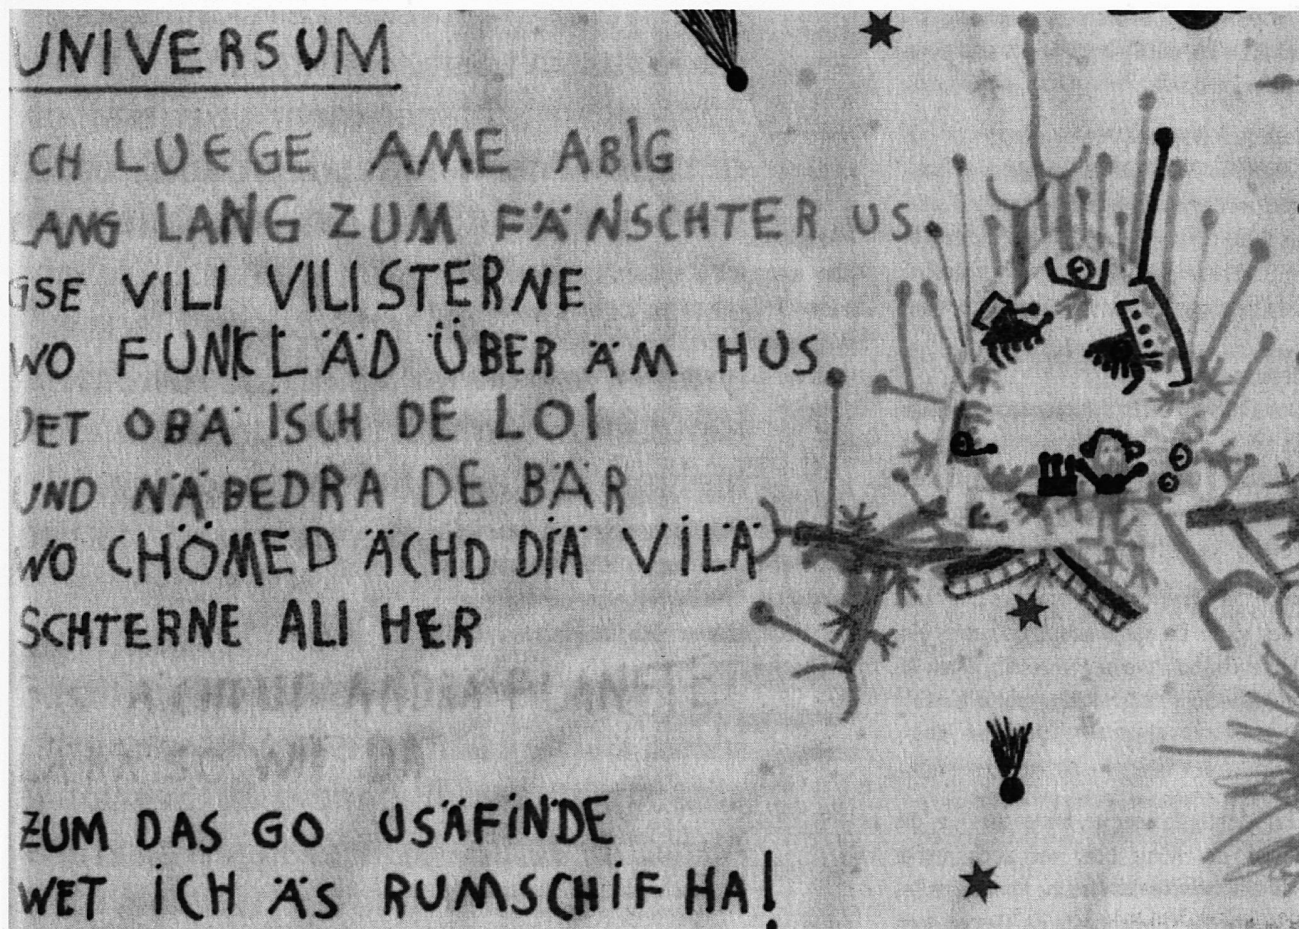 UNIVERSUM
ICH LUEGE AME ABIG
LANG LANG ZUM FÄNSCHTER US
GSE VILI VILI STERNE
WO FUNKLÄD ÜBER ÄM HUS
DET OBÄ ISCH DE LOI
UND NÄBEDRA DE BÄR
WO CHÖMED ÄCHD DIÄ VILÄ
SCHTERNE ALI HER
ZUM DAS GO USÄFINDE
WET ICH ÄS RUMSCHIF HA!